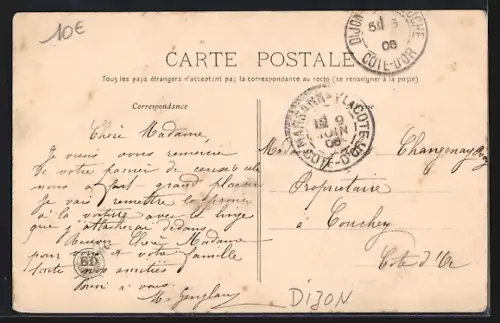 10€
CARTE POSTALE
Tous les pays étrangers n'acceptent pas la correspondance au recto (se renseigner à la poste)
Correspondance
DIJON
5E 8
06
COTE-D'OR
MARSANNAY-LA-COTE
9
JUIN
06
COTE-D'OR
Chère Madame,
Je viens vous remercier
de votre panier de cerises cela
nous a fait grand plaisir
Je vais remettre le panier
à la voiture avec le linge
que j'attacherai dedans
Bonsoir Chère Madame
pour vous et votre famille
toute nos amitiés
à vous
M.
Madame Changenay
Propriétaire
à Couchey
Côte d'Or
BD
DIJON